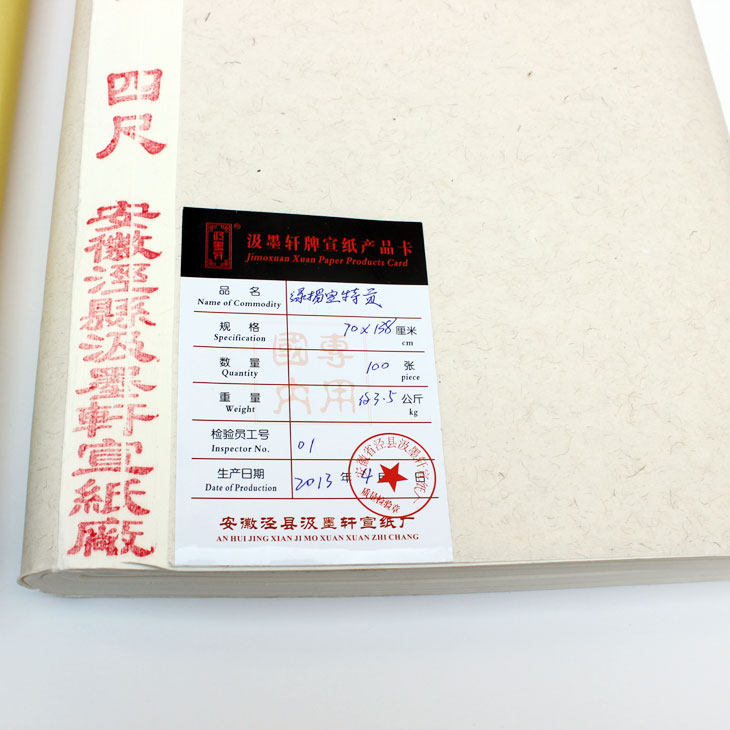 四尺
安徽涇縣汲墨軒宣紙廠
汲墨轩牌宣纸产品卡
Jimoxuan Xuan Paper Products Card
品名
Name of Commodity
规格 70×138 厘米
Specification cm
数量 100 张
Quantity piece
重量 3.5 公斤
Weight kg
检验员工号 01
Inspector No.
生产日期 2013 年 4 月
Date of Production
安徽省泾县汲墨轩宣纸厂
质量检验章
專用
國内
安徽泾县汲墨轩宣纸厂
AN HUI JING XIAN JI MO XUAN XUAN ZHI CHANG